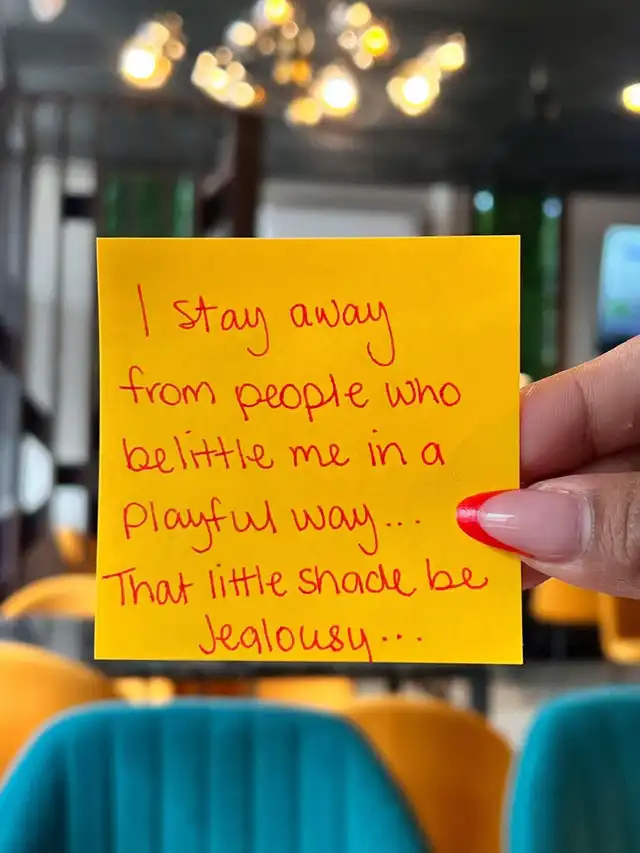 I stay away
from people who
belittle me in a
playful way...
That little shade be
Jealousy...